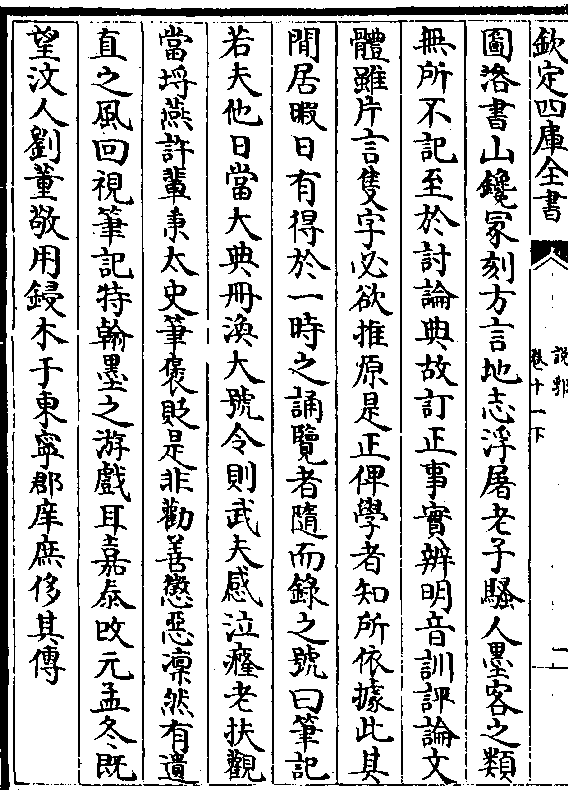 欽定四庫全書
說郛
卷十一下
二
圖洛書山鑱冢刻方言地志浮屠老子騷人墨客之類
無所不記至於討論典故訂正事實辨明音訓評論文
體雖片言隻字必欲推原是正俾學者知所依據此其
閒居暇日有得於一時之誦覽者隨而錄之號曰筆記
若夫他日當大典冊渙大號令則武夫感泣癃老扶觀
當埒燕許輩秉太史筆褒貶是非勸善懲惡凛然有遺
直之風回視筆記特翰墨之游戲耳嘉泰改元孟冬既
望汶人劉董敬用鋟木于東寧郡庠庶侈其傳